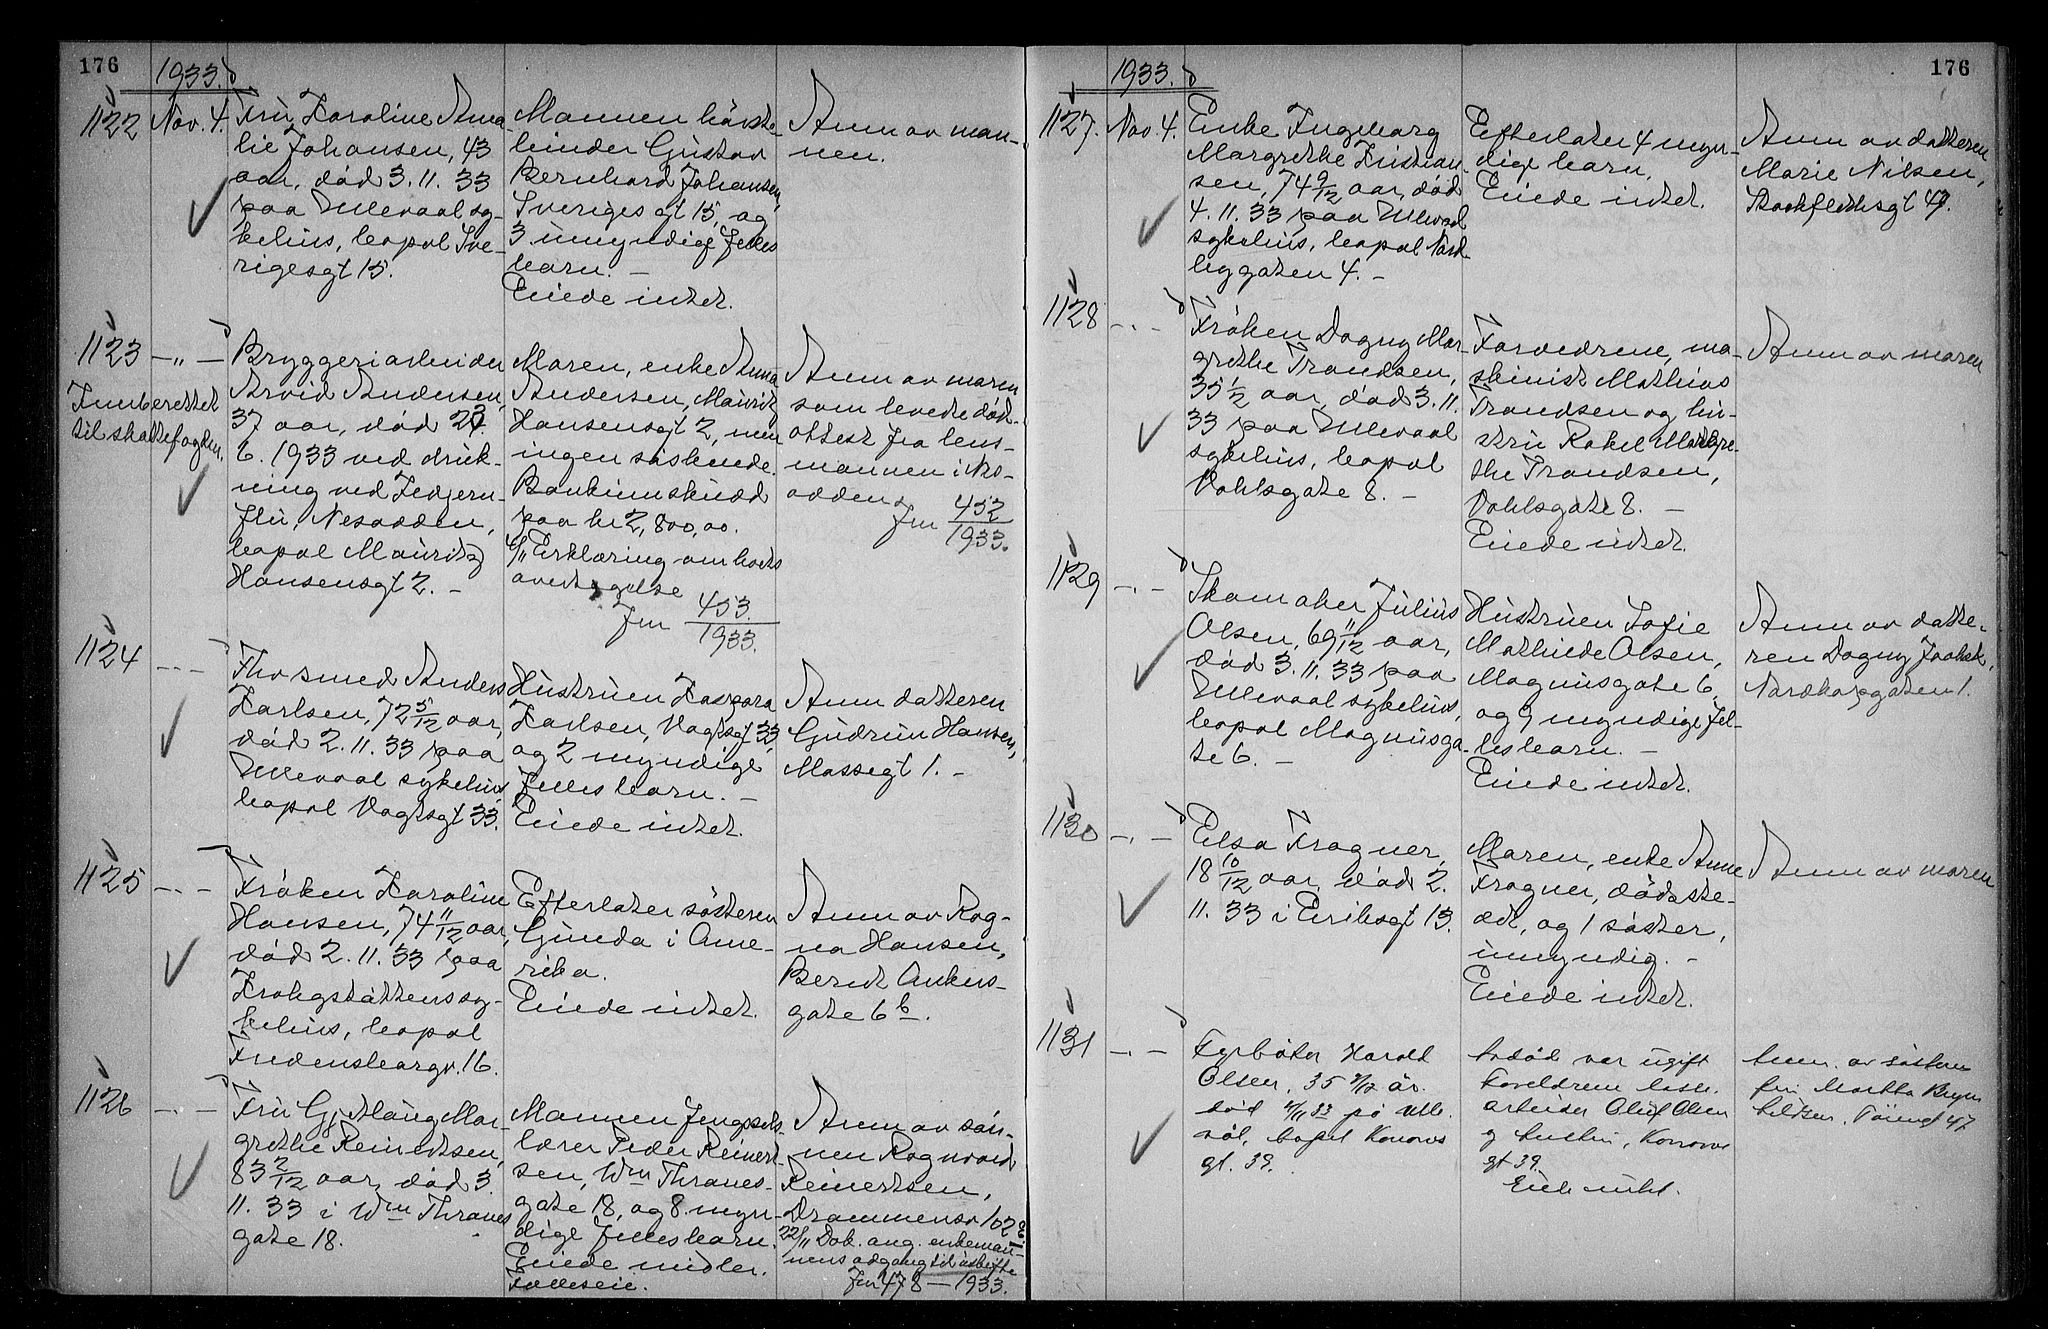 176
1933.
1122
Nov. 4.
Fru Karoline Ama-
lie Johansen, 43
aar, död 3.11.33
paa Ullevaal sy-
kehus, bopæl Sve-
rigesgt 15.
Mannen
Gustav
Bernhard Johansen,
Sverigesgt 15, og
3 umyndige felles
barn. —
Eiede intet.
Anm av man-
nen.
1123
— " —
Innberettet
til skattefogden.
Bryggeriarbeider
Arvid Andersen,
37 aar, död
6. 1933 ved druk-
ning ved
Nesodden,
bopæl Mauritz
Hansensgt 2. —
Moren, enke Anna
Andersen, Mauritz
Hansensgt 2, men
ingen söskende.
Bankinnskudd
paa kr 2,800,00.
Erklæring om boets
overtagelse
Jnr 453
1933.
Anm av moren
som levete död-
attest fra lens-
mannen i Nes-
odden
Jnr 452
1933.
1124
— " —
smed Anders
Karlsen, 72 5/12 aar,
död 2.11.33 paa
Ullevaal sykehus,
bopæl Vogtsgt 33.
Hustruen Kaspara
Karlsen, Vogtsgt 33,
og 2 myndige
felles barn. —
Eiede intet.
Anm datteren
Gudrun Hansen,
Mossegt 1. —
1125
— " —
Fröken Karoline
Hansen, 74 11/12 aar,
död 2.11.33 paa
Krohgstöttens sy-
kehus, bopæl
Fredensborgv. 16.
Efterlater sösteren
Gunda i Ame-
rika.
Eiede intet.
Anm av Rag-
na Hansen,
Bernt Ankers-
gate 6 b.
1126
— " —
Fru Gjertlaug Mar-
grethe Reinertsen,
83 2/12 aar, död 3.
11.33 i Wm Thranes
gate 18.
Mannen fengsels-
lærer Peder Reinert-
sen, Wm Thranes-
gate 18, og 8 myn-
dige felles barn.
Eiede midler.
Felleseie.
Anm av sön-
nen Ragnvald
Reinertsen,
Drammensv 102
22/11 Dok. ang. enkeman-
nens adgang til uskifte
Jnr 478 — 1933.
1933.
176
1127.
Nov. 4.
Enke Ingeborg
Margrethe Kristian-
sen, 74 9/12 aar, död
4.11.33 paa Ullevaal
sykehus, bopæl Nord-
byggaten 4. —
Efterlater 4 myn-
dige barn.
Eiede intet.
Anm av datteren
Marie Nilsen,
Stockflethsgt 47.
1128
— " —
Fröken Dagny Mar-
grethe Trondsen,
35 1/2 aar, död 3.11.
33 paa Ullevaal
sykehus, bopæl
Dahlsgate 8. —
Forældrene, ma-
skinist Mathias
Trondsen og hu-
stru Rakel Margre-
the Trondsen,
Dahlsgate 8. —
Eiede intet.
Anm av moren
1129
— " —
Skomaker Julius
Olsen, 69 11/12 aar,
död 3.11.33 paa
Ullevaal sykehus,
bopæl Magnusga-
te 6. —
Hustruen Sofie
Mathilde Olsen,
Magnusgate 6,
og 9 myndige fel-
les barn. —
Eiede intet.
Anm av datte-
ren Dagny
Nordkapgaten 1.
1130
— " —
Elsa Fragner,
18 10/12 aar, död 2.
11.33 i Eriksgt 13.
Moren, enke Anne
Fragner, dödsste-
det, og 1 söster,
umyndig. —
Eiede intet.
Anm av moren
1131
— " —
Fyrböter Harald
Olsen, 35 år.
död 4/11 33 på Ulle-
vål, bopæl Konows
gt. 39.
Avdöd var ugift
Foreldrene
arbeider Oluf Olsen
og hustru, Konows
gt 39.
Eide intet.
Anm. av sösteren
fru Martha
47